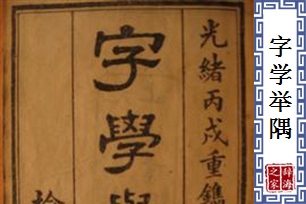 光緒丙戌重鐫
字學舉
字学举隅
辞海之家